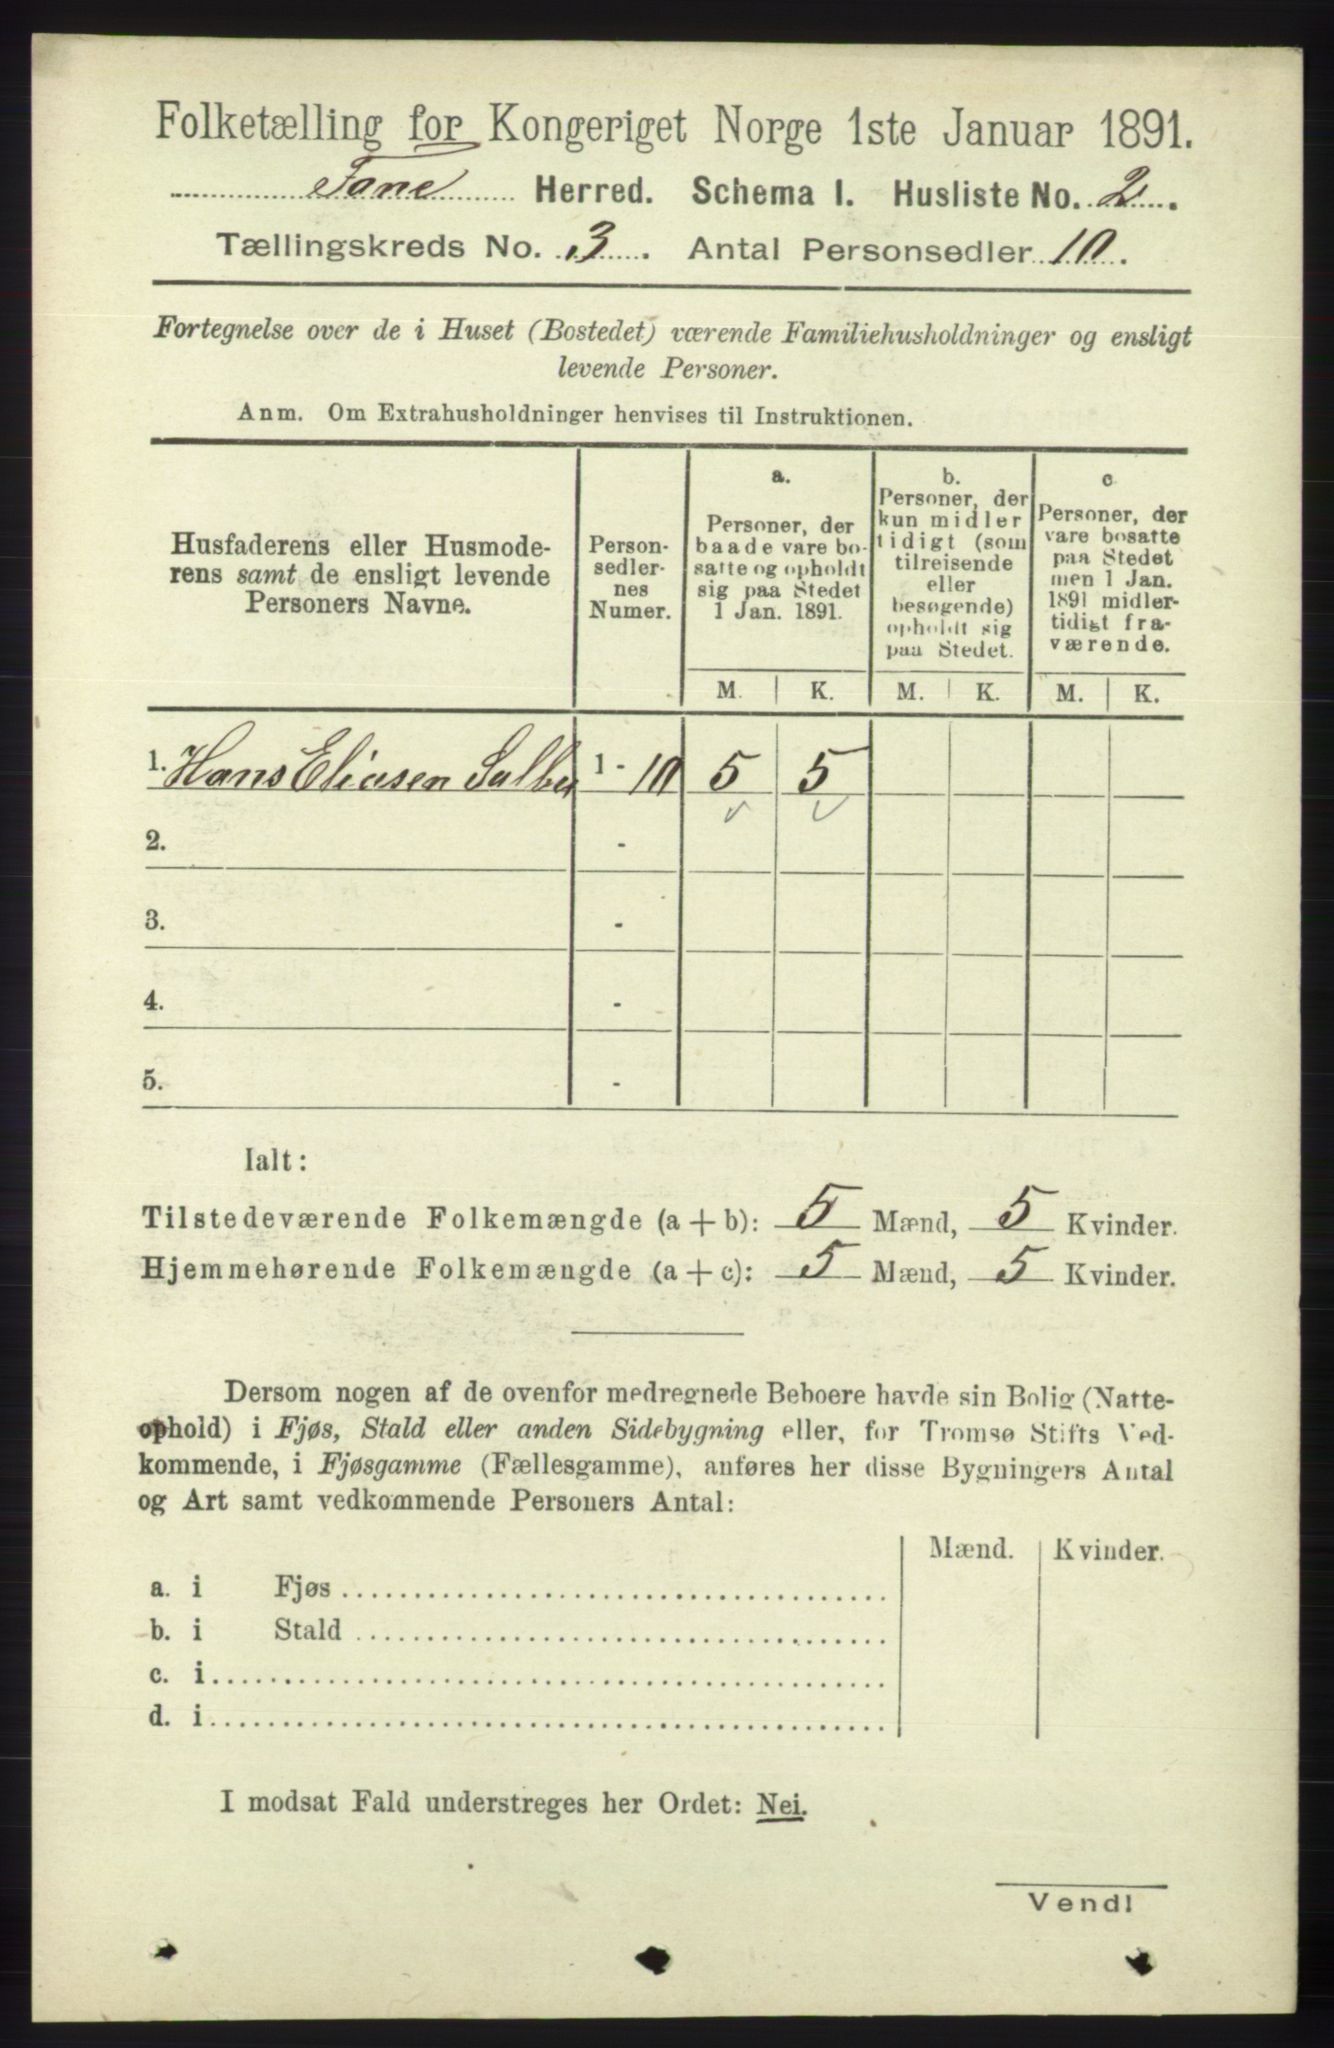 Folketælling for Kongeriget Norge 1ste Januar 1891.
Fane Herred. Schema I. Husliste No. 2.
Tællingskreds No. 3. Antal Personsedler 10.
Fortegnelse over de i Huset (Bostedet) værende Familiehusholdninger og ensligt
levende Personer.
Anm. Om Extrahusholdninger henvises til Instruktionen.
Husfaderens eller Husmode-
rens samt de ensligt levende
Personers Navne.
Person-
sedler-
nes
Numer.
a.
Personer, der
baade vare bo-
satte og opholdt
sig paa Stedet
1 Jan. 1891.
b.
Personer, der
kun midler
tidigt (som
tilreisende
eller
besøgende)
opholdt sig
paa Stedet.
c
Personer, der
vare bosatte
paa Stedet
men 1 Jan.
1891 midler-
tidigt fra-
værende.
M. K. M. K. M. K.
1. Hans Eliasen 1 - 10 5 5
2. -
3. -
4. -
5. -
Ialt:
Tilstedeværende Folkemængde (a + b): 5 Mænd, 5 Kvinder.
Hjemmehørende Folkemængde (a + c): 5 Mænd, 5 Kvinder.
Dersom nogen af de ovenfor medregnede Beboere havde sin Bolig (Natte-
ophold) i Fjøs, Stald eller anden Sidebygning eller, for Tromsø Stifts Ved-
kommende, i Fjøsgamme (Fællesgamme), anføres her disse Bygningers Antal
og Art samt vedkommende Personers Antal:
Mænd. Kvinder.
a. i Fjøs
b. i Stald
c. i
d. i
I modsat Fald understreges her Ordet: Nei.
Vend!